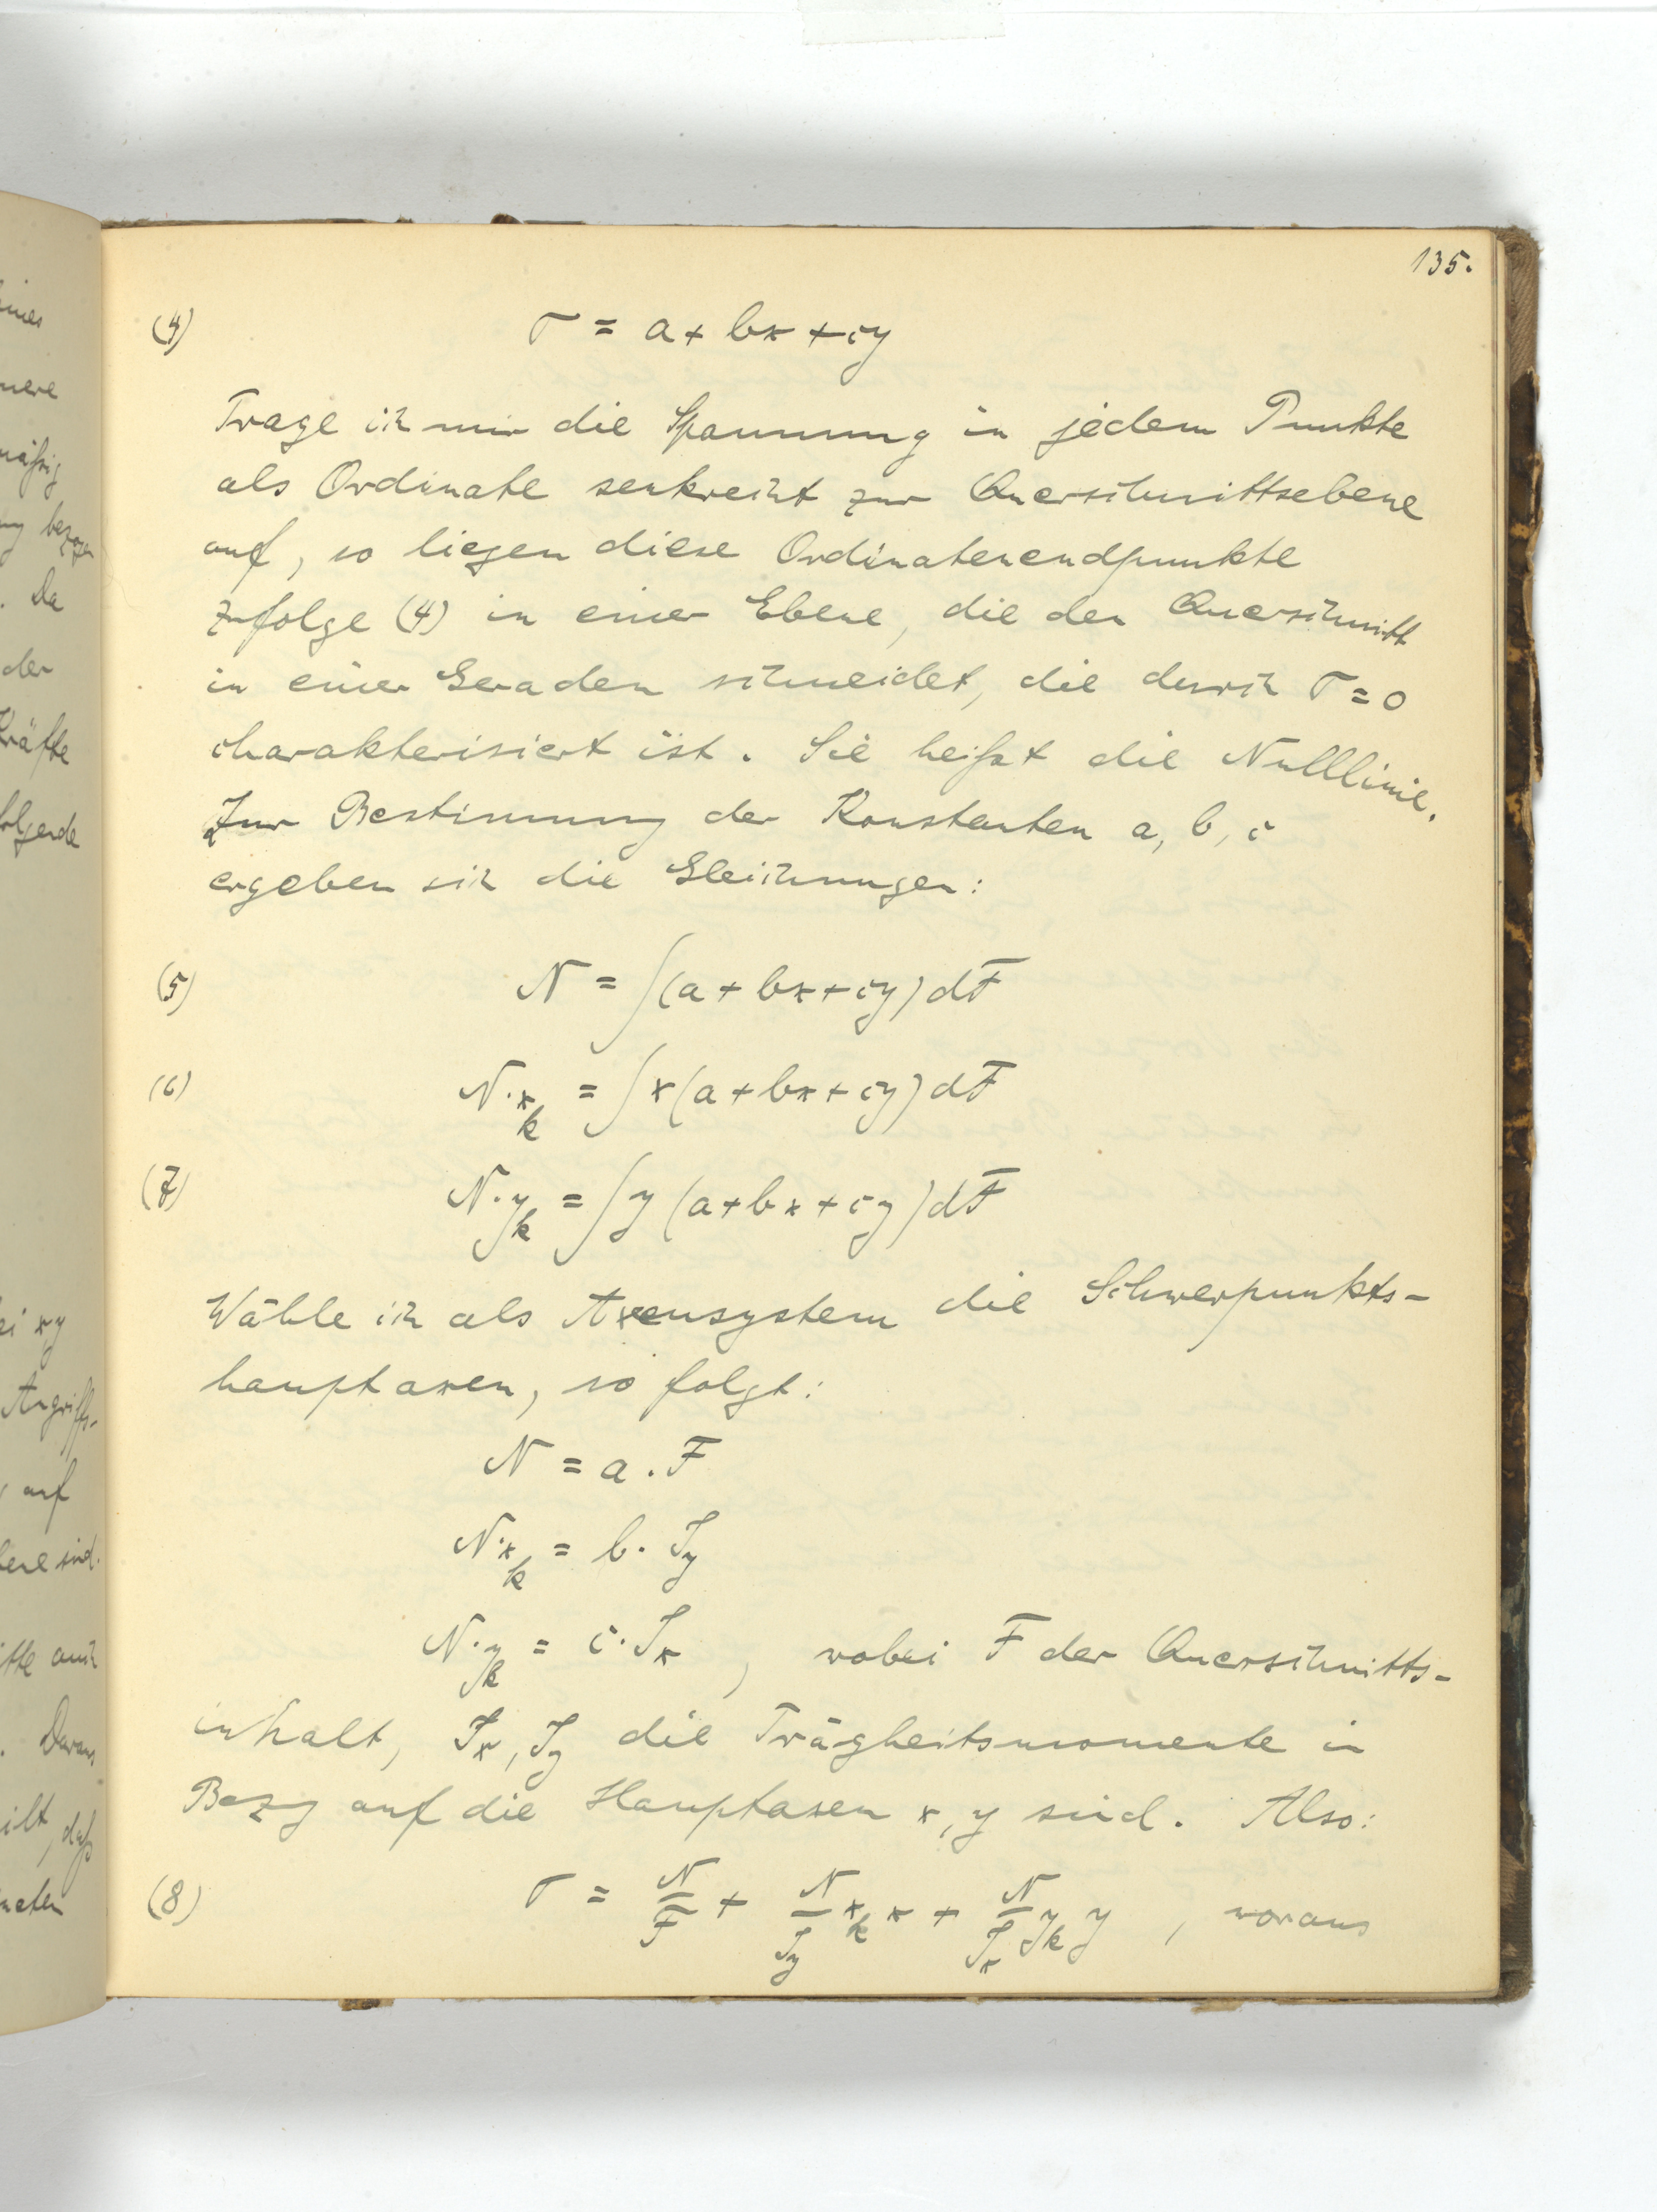 eines
nere
mäßig
ng bezogen
. Da
der
Kräfte
olgende
ei xy
Angriffs-
auf
bene sind.
itte auch
. Daraus
ilt, daß
neten
135.
(4) σ = a + bx + cy
Trage ich mir die Spannung in jedem Punkte
als Ordinate senkrecht zur Querschnittsebene
auf, so liegen diese Ordinatenendpunkte
zufolge (4) in einer Ebene, die den Querschnitt
in einer Geraden schneidet, die durch σ = 0
charakterisiert ist. Sie heißt die Nulllinie.
Zur Bestimmung der Konstanten a, b, c
ergeben sich die Gleichungen:
(5) N = ∫(a + bx + cy) dF
(6) N·x_k = ∫x(a + bx + cy) dF
(7) N·y_k = ∫y(a + bx + cy) dF
Wähle ich als Axensystem die Schwerpunkts-
hauptaxen, so folgt:
N = a·F
N·x_k = b·J_y
N·y_k = c·J_x , wobei F der Querschnitts-
inhalt, J_x, J_y die Trägheitsmomente in
Bezug auf die Hauptaxen x, y sind. Also:
(8) σ = N/F + N/J_y x_k x + N/J_x y_k y , woraus